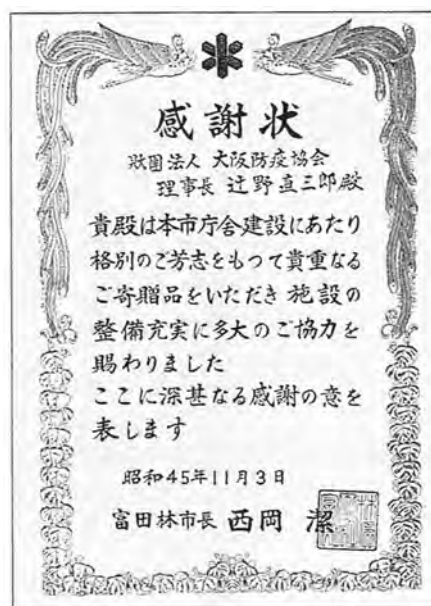 感謝状
財團法人 大阪防疫協会
理事長 辻野直三郎殿
貴殿は本市庁舎建設にあたり
格別のご芳志をもって貴重なる
ご寄贈品をいただき 施設の
整備充実に多大のご協力を
賜わりました
ここに深甚なる感謝の意を
表します
昭和45年11月3日
富田林市長 西岡 潔